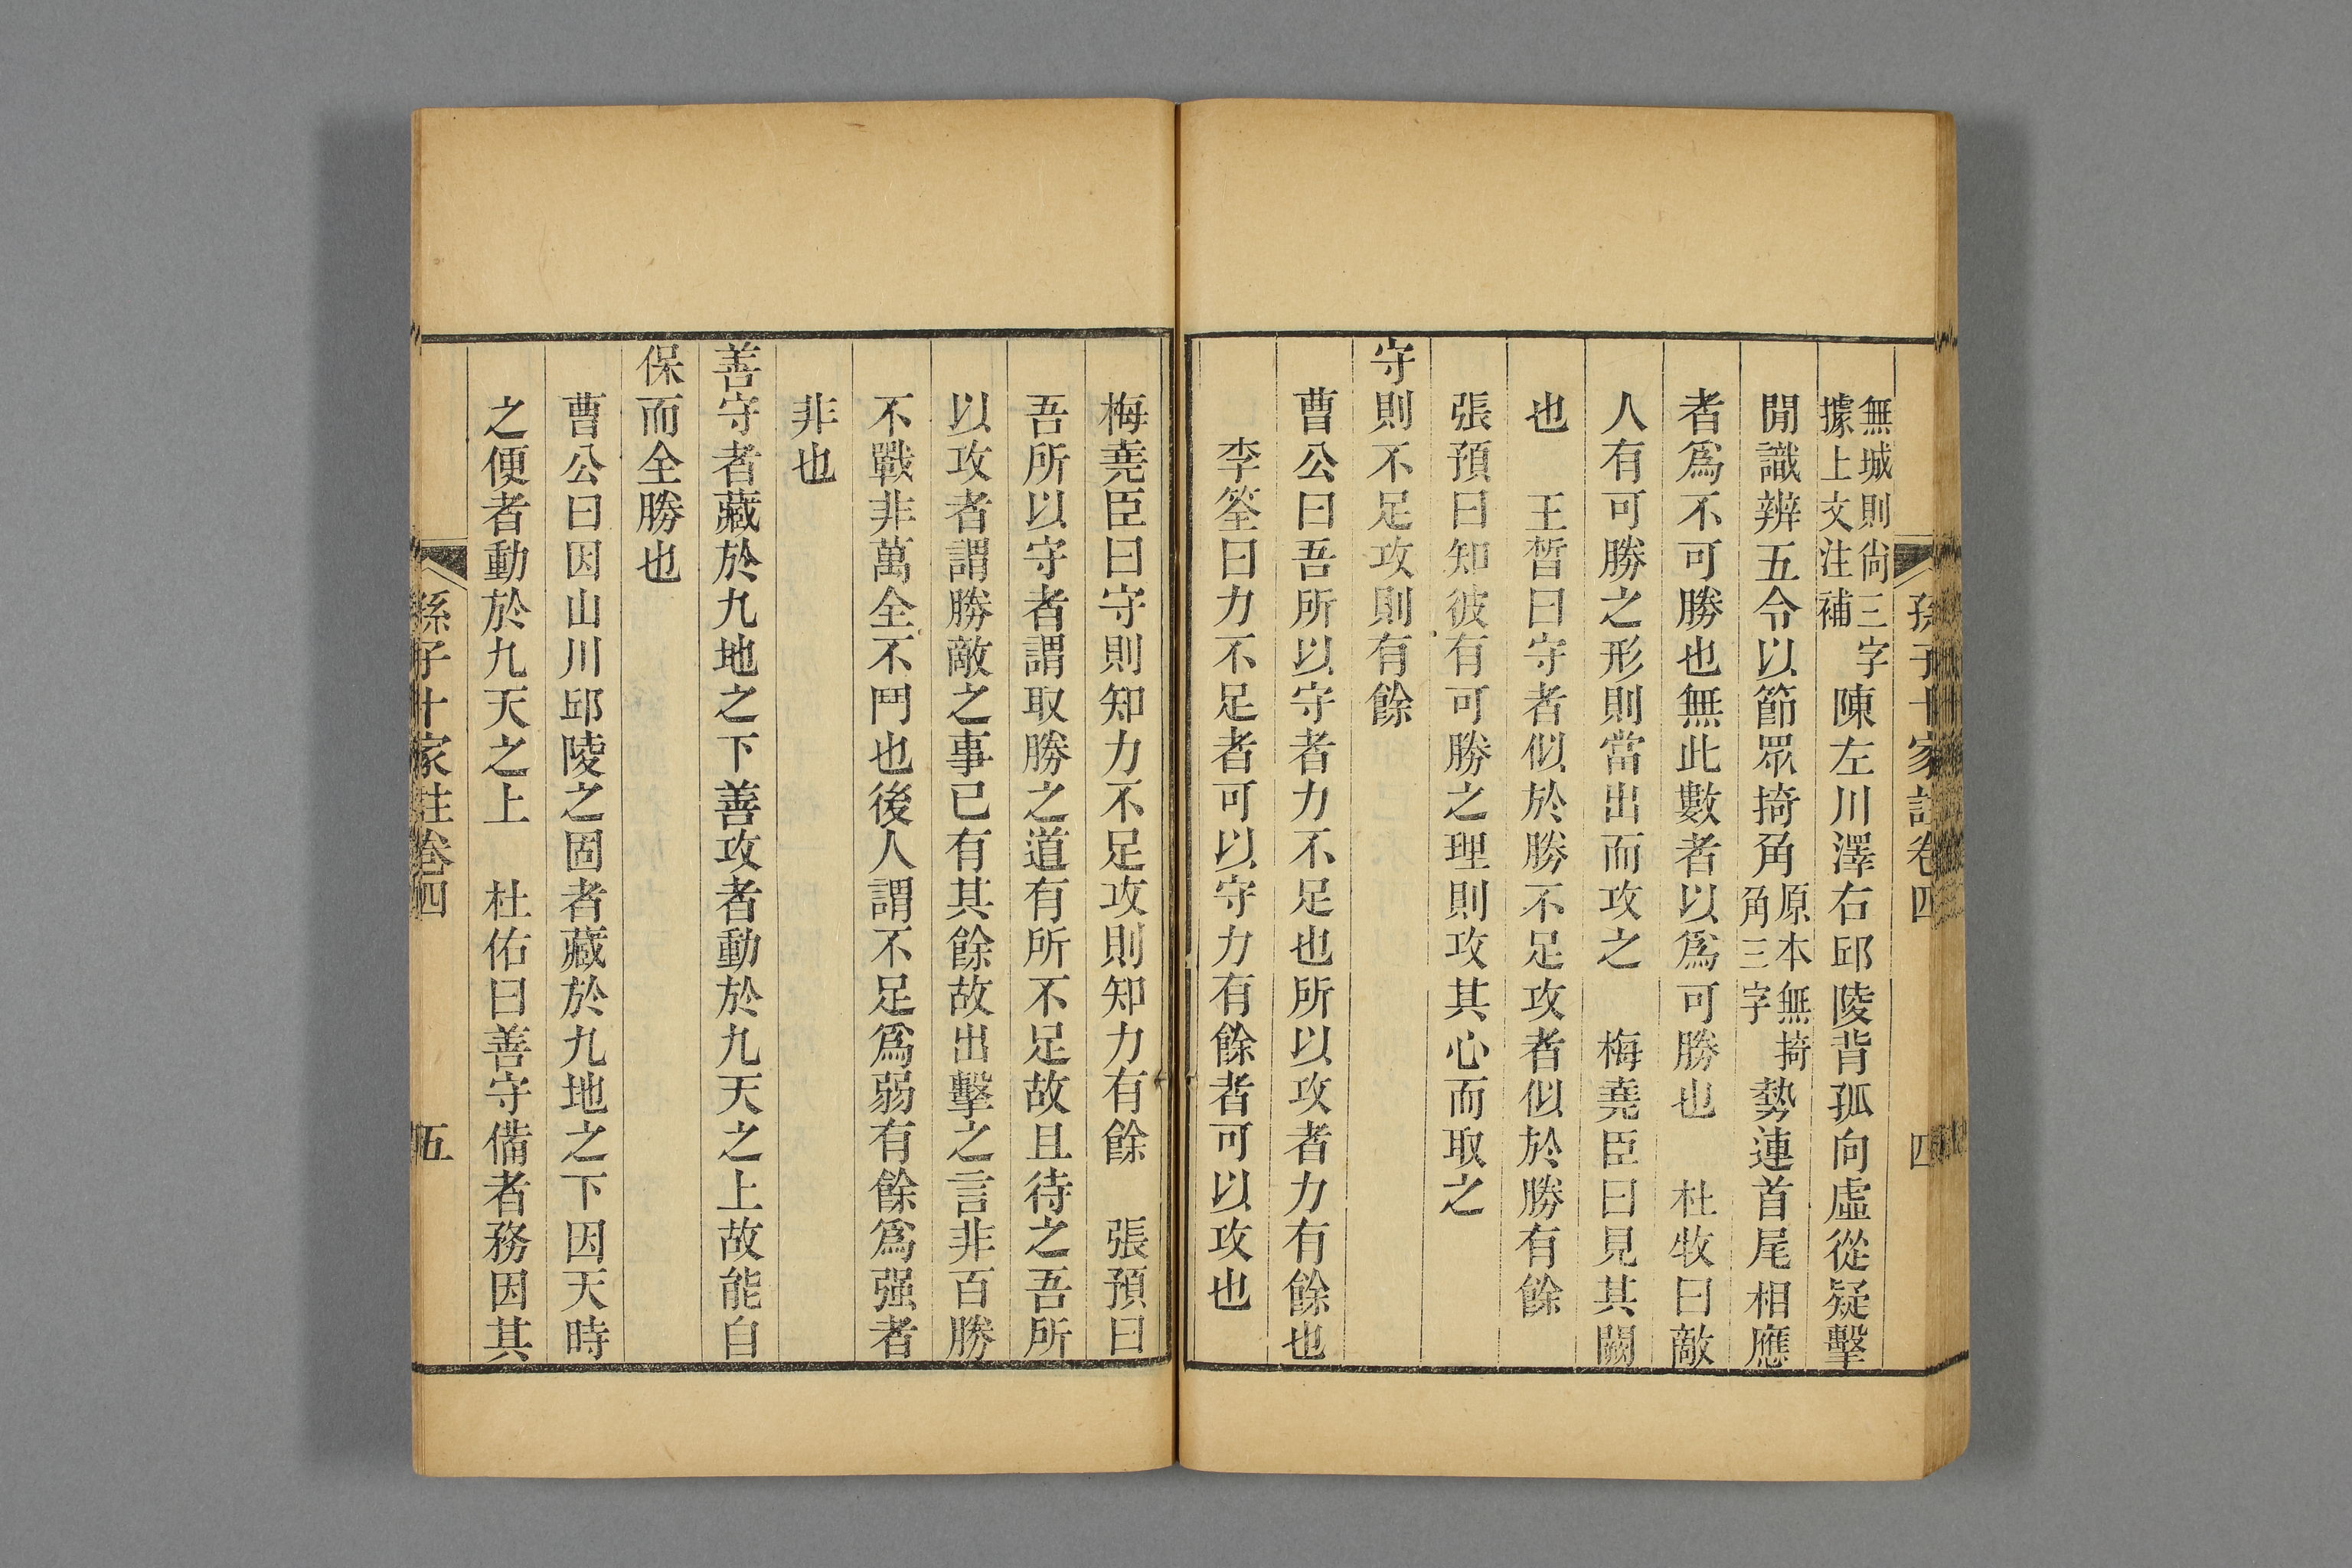 孫子十家註卷四 四
無城則尙三字
據上文注補
陳左川澤右邱陵背孤向虛從疑擊
閒識辨五令以節眾掎角
原本無掎
角三字
勢連首尾相應
者爲不可勝也無此數者以爲可勝也 杜牧曰敵
人有可勝之形則當出而攻之 梅堯臣曰見其闕
也 王晳曰守者似於勝不足攻者似於勝有餘
張預曰知彼有可勝之理則攻其心而取之
守則不足攻則有餘
曹公曰吾所以守者力不足也所以攻者力有餘也
李筌曰力不足者可以守力有餘者可以攻也
梅堯臣曰守則知力不足攻則知力有餘 張預曰
吾所以守者謂取勝之道有所不足故且待之吾所
以攻者謂勝敵之事已有其餘故出擊之言非百勝
不戰非萬全不鬥也後人謂不足爲弱有餘爲强者
非也
善守者藏於九地之下善攻者動於九天之上故能自
保而全勝也
曹公曰因山川邱陵之固者藏於九地之下因天時
之便者動於九天之上 杜佑曰善守備者務因其
孫子十家註卷四 五